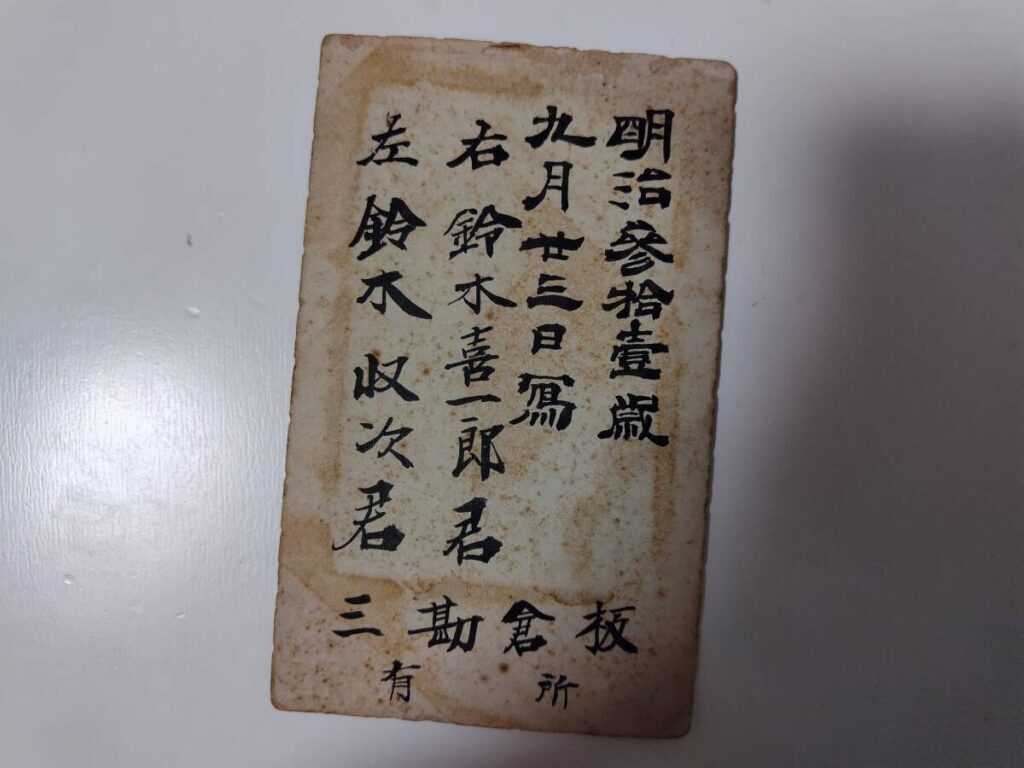 明治參拾壹歳
九月廿三日寫
右 鈴木喜一郎君
左 鈴木収次君
板倉勘三
所有